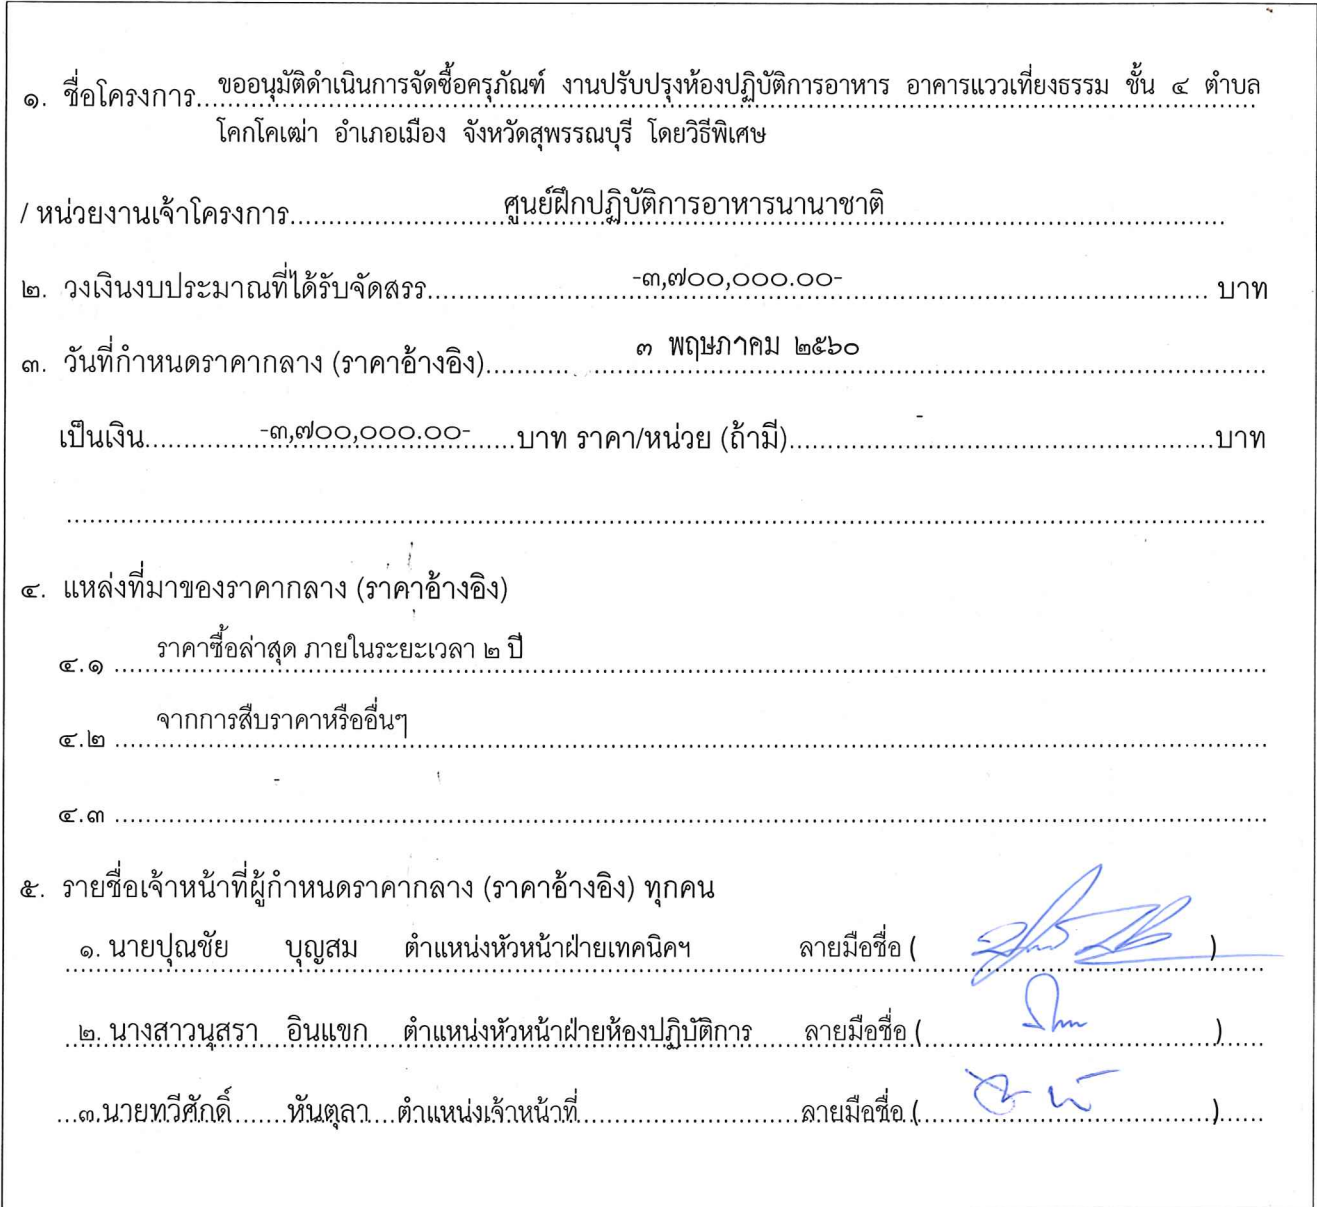 ๑. ชื่อโครงการ..ขออนุมัติดำเนินการจัดซื้อครุภัณฑ์ งานปรับปรุงห้องปฏิบัติการอาหาร อาคารแววเที่ยงธรรม ชั้น ๔ ตำบล
โคกโคเฒ่า อำเภอเมือง จังหวัดสุพรรณบุรี โดยวิธีพิเศษ
/ หน่วยงานเจ้าโครงการ..........ศูนย์ฝึกปฏิบัติการอาหารนานาชาติ..........
๒. วงเงินงบประมาณที่ได้รับจัดสรร..........-๓,๗๐๐,๐๐๐.๐๐-.......... บาท
๓. วันที่กำหนดราคากลาง (ราคาอ้างอิง)..........๓ พฤษภาคม ๒๕๖๐..........
เป็นเงิน..........-๓,๗๐๐,๐๐๐.๐๐-......บาท ราคา/หน่วย (ถ้ามี)..........-..........บาท
....................
๔. แหล่งที่มาของราคากลาง (ราคาอ้างอิง)
๔.๑ ราคาซื้อล่าสุด ภายในระยะเวลา ๒ ปี..........
๔.๒ จากการสืบราคาหรืออื่นๆ..........
๔.๓ ..........-..........
๕. รายชื่อเจ้าหน้าที่ผู้กำหนดราคากลาง (ราคาอ้างอิง) ทุกคน
๑. นายปุณชัย บุญสม ตำแหน่งหัวหน้าฝ่ายเทคนิคฯ ลายมือชื่อ ( )
๒. นางสาวนุสรา อินแขก ตำแหน่งหัวหน้าฝ่ายห้องปฏิบัติการ ลายมือชื่อ ( )
...๓.นายทวีศักดิ์ หันตุลา ตำแหน่งเจ้าหน้าที่..........ลายมือชื่อ ( )